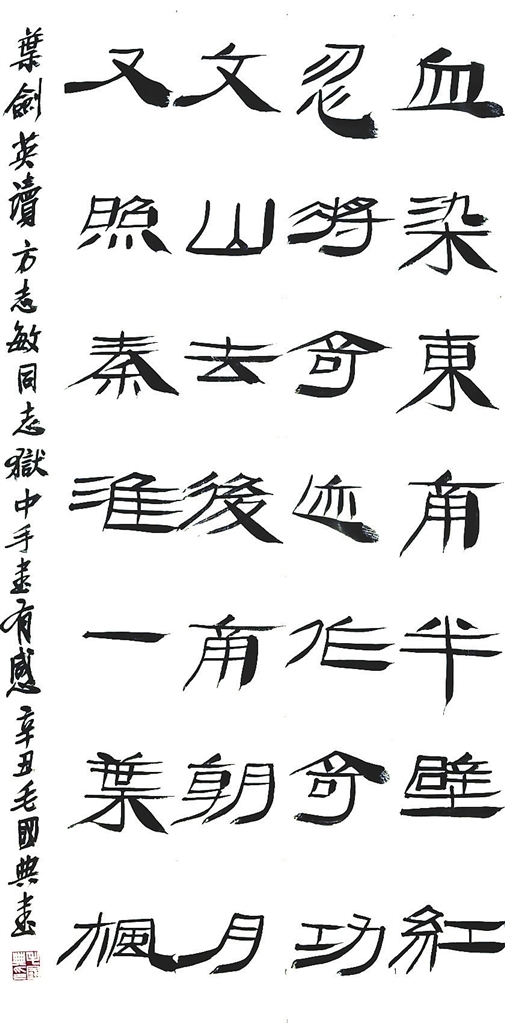 血染東南半壁紅
忍將奇迹作奇功
文山去後南朝月
又照秦淮一葉楓
葉劍英讀方志敏同志獄中手書有感辛丑毛國典書